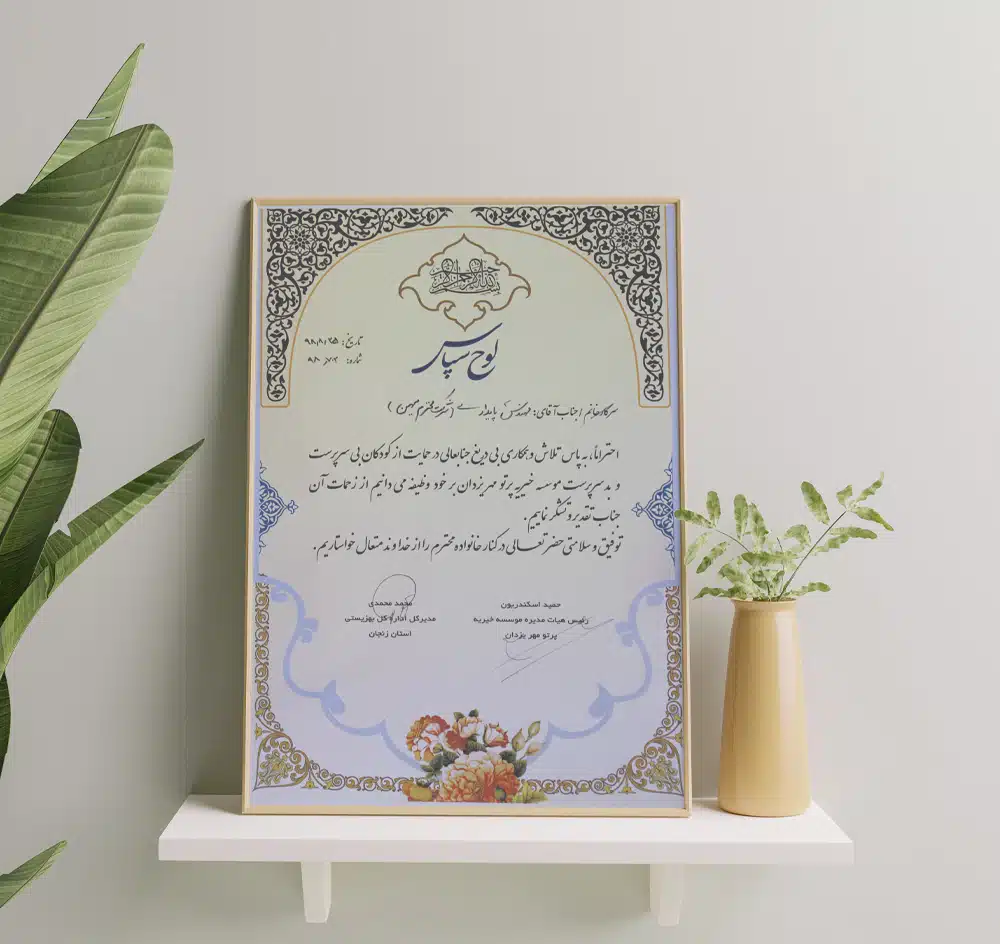 بسم الله الرحمن الرحیم
لوح سپاس
تاریخ: ۹۸/۸/۲۵
شماره: ۹۸
سرکار خانم / جناب آقای: مهندس پایدار (شرکت محترم میهن)
احتراماً، به پاس تلاش و همکاری بی دریغ جنابعالی در حمایت از کودکان بی سرپرست
و بد سرپرست موسسه خیریه پرتو مهر یزدان بر خود وظیفه می دانیم از زحمات آن
جناب تقدیر و تشکر نماییم.
توفیق و سلامتی حضرتعالی در کنار خانواده محترم را از خداوند متعال خواستاریم.
حمید اسکندریون
رئیس هیات مدیره موسسه خیریه
پرتو مهر یزدان
محمد محمدی
مدیرکل اداره کل بهزیستی
استان زنجان